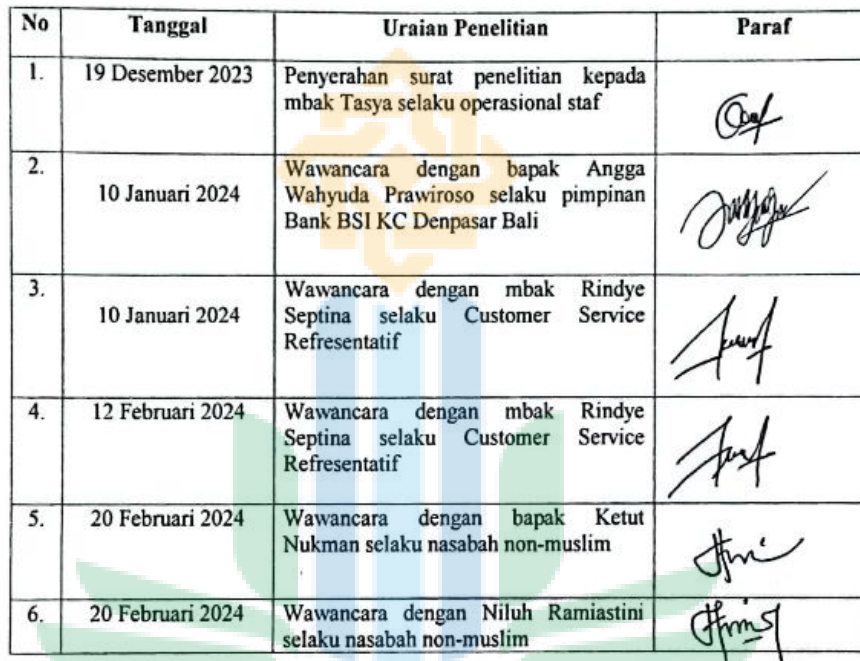 No Tanggal Uraian Penelitian Paraf
1. 19 Desember 2023 Penyerahan surat penelitian kepada
mbak Tasya selaku operasional staf
2. 10 Januari 2024 Wawancara dengan bapak Angga
Wahyuda Prawiroso selaku pimpinan
Bank BSI KC Denpasar Bali
3. 10 Januari 2024 Wawancara dengan mbak Rindye
Septina selaku Customer Service
Refresentatif
4. 12 Februari 2024 Wawancara dengan mbak Rindye
Septina selaku Customer Service
Refresentatif
5. 20 Februari 2024 Wawancara dengan bapak Ketut
Nukman selaku nasabah non-muslim
6. 20 Februari 2024 Wawancara dengan Niluh Ramiastini
selaku nasabah non-muslim